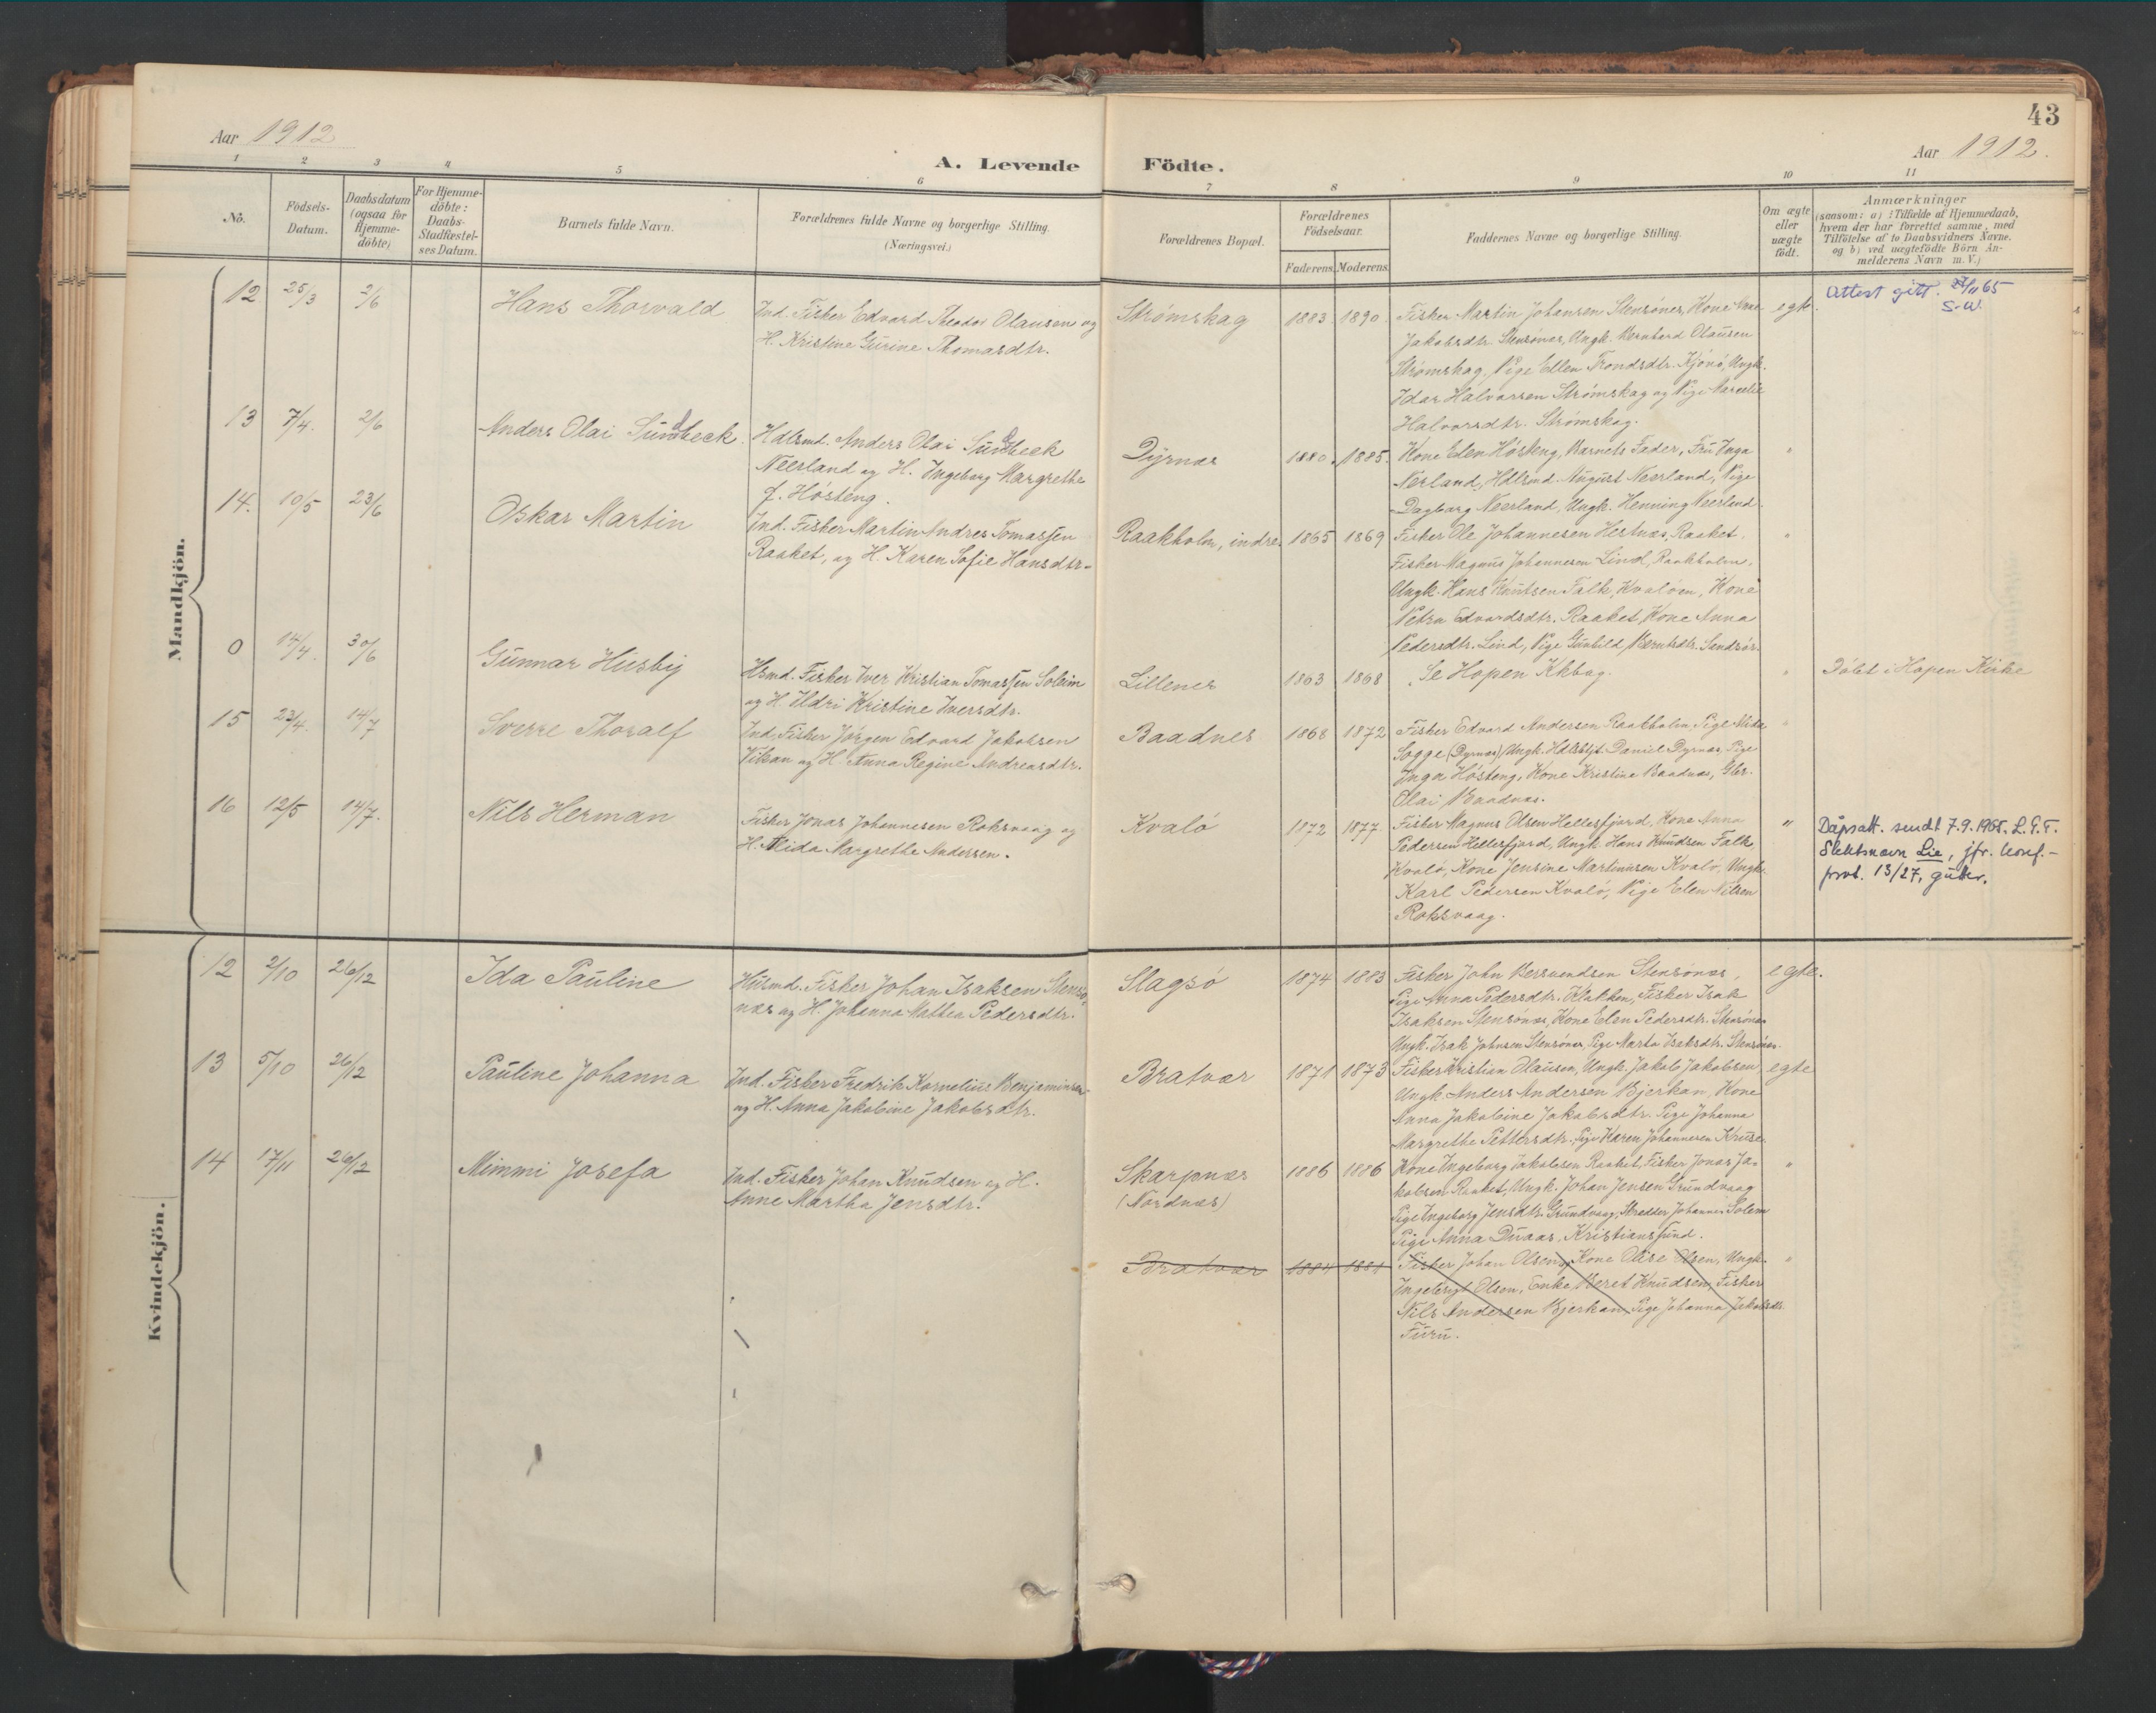 43
Aar 1912
Aar 1912.
A. Levende Födte.
1 2 3 4 5 6 7 8 9 10 11
No.
Födsels-
Datum.
Daabsdatum
(ogsaa for
Hjemme-
döbte)
For Hjemme-
döbte:
Daabs-
Stadfæstel-
ses Datum.
Barnets fulde Navn.
Forældrenes fulde Navne og borgerlige Stilling.
(Næringsvei)
Forældrenes Bopæl.
Forældrenes
Födselsaar.
Faderens. Moderens.
Faddernes Navne og borgerlige Stilling.
Om ægte
eller
uægte
födt.
Anmærkninger
(saasom: a) i Tilfælde af Hjemmedaab,
hvem der har forrettet samme, med
Tilföielse af to Daabsvidners Navne.
og b) ved uægtefödte Börn An-
melderens Navn m. V.)
Mandkjön.
12 25/3 2/6 Hans Thorvald
Ind. Fisker Edvard Theodor Olausen og
H. Kristine Gurine Thomasdtr.
Strømskag 1883. 1890.
Fisker Martin Johansen Stensönes, Kone
Jakobsdtr. Stensönes, Ungk. Bernhard Olausen
Strømskag, Pige Ellen Trondsdtr. Kjönö, Ungk.
Idar Halvorsen Strømskag og Pige
Halvorsdtr. Strømskag.
egte.
Attest gitt. 65
S.W.
13 7/4. 2/6 Anders Olai Sundbeck.
Hdlsmd. Anders Olai Sundbeck
Neerland og H. Ingeborg Margrethe
f. Hösteng.
Dyrnes 1880. 1885.
Kone Elen Hösteng, Barnets Fader, Fru Inga
Nerland, Hdlsmd. August Neerland, Pige
Dagborg Neerland, Ungk. Henning Neerland.
"
14. 10/5 23/6 Oskar Martin
Ind. Fisker Martin Andres Tomassen
Raaket, og H. Karen Sofie Hansdtr.
Raakholm, indre. 1865 1869
Fisker Ole Johannesen Hestnes, Raaket.
Fisker Magnus Johannesen Lind, Raakholm.
Ungk. Hans Knutsen Falk, Kvalöen, Kone
Petra Edvardsdtr. Raaket, Kone Anna
Pedersdtr. Lind, Pige Gunhild Berntsdtr. Sandsör.
"
0 14/4. 30/6 Gunnar Husby
Hsmd. Fisker Iver Kristian Tomassen Soleim
og H. Ildri Kristine Iversdtr.
Lillenes 1863 1868
Se Hopen Kkbog.
"
Döbt i Hopen Kirke
15 23/4. 14/7 Sverre Thoralf
Ind. Fisker Jörgen Edvard Jakobsen
Vikan og H. Anna Regine Andreasdtr.
Baadnes 1868 1872
Fisker Edvard Andersen Raakholm, Pige Alida
Sogge (Dyrnes) Ungk. Hdlsbtj. Daniel Dyrnes, Pige
Inga Hösteng, Kone Kristine Baadnes, Gbr.
Olai Baadnes.
"
16 12/5 14/7. Nils Herman
Fisker Jonas Johannesen Roksvaag og
H. Alida Margrethe Andersen.
Kvalö 1872 1877.
Fisker Magnus Olsen Hellesfjord, Kone Anna
Pedersen Hellesfjord, Ungk. Hans Knudsen Falk,
Kvalö, Kone Jensine Martinusen Kvalö, Ungk.
Karl Pedersen Kvalö, Pige Elen Nilsen
Roksvaag.
"
Dåpsatt. sendt 7.9.1965. L.T.T.
Slektsnavn Lie, jfr. konf.-
prot. 13/27, gutter.
Kvindekjön.
12 2/10 26/12 Ida Pauline
Husmd. Fisker Johan Isaksen Stensö-
nes og H. Johanna Mathea Pedersdtr.
Slagsö 1874 1883
Fisker John Berssvendsen Stensönes,
Pige Anna Pedersdtr. Klakken, Fisker Isak
Isaksen Stensönes, Kone Elen Pedersdtr. Stensönes
Ungk. Isak Johnsen Stensönes, Pige Marta Isaksdtr. Stensönes.
egte.
13 5/10 26/12 Pauline Johanna
Ind. Fisker Fredrik Kornelius Benjaminsen
og H. Anna Jakobine Jakobsdtr.
Bratvær 1871 1873
Fisker Kristian Olausen, Ungk. Jakob Jakobsen,
Ungk. Anders Andersen Bjerkan, Kone
Anna Jakobine Jakobsdtr. Pige Johanna
Margrethe Pettersdtr. Pige Karen Johannesen Kruse.
egte
14 17/11 26/12 Mimmi Josefa
Ind. Fisker Johan Knudsen og H.
Anne Martha Jensdtr.
Skarpnes
(Nordnes)
1886 1886
Kone Ingeborg Jakobsen Raaket, Fisker Jonas Ja-
kobsen Raaket, Ungk. Johan Jensen Grundvaag
Pige Ingeborg Jensdtr. Grundvaag, Skredder Johannes Solem
Pige Anna Duaas, Kristiansund.
"
Bratvær 1884 1881
Fisker Johan Olsen, Kone Olise Olsen, Ungk.
Ingebrigt Olsen, Enke Beret Knudsen, Fisker
Nils Andersen Bjerkan, Pige Johanna Jakobsdtr.
Furu.
"